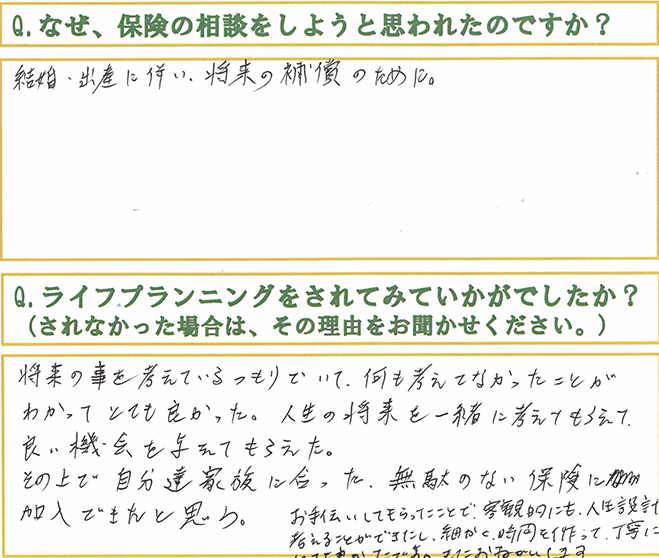 Q.なぜ、保険の相談をしようと思われたのですか?
結婚・出産に伴い、将来の補償のために。
Q.ライフプランニングをされてみていかがでしたか?
(されなかった場合は、その理由をお聞かせください。)
将来の事を考えているつもりでいて、何も考えてなかったことが
わかってとても良かった。人生の将来を一緒に考えてもらえて、
良い機会を与えてもらえた。
その上で自分達家族に合った、無駄のない保険に
加入できたと思う。
お手伝いしてもらってことで、客観的にも、人生設計
考えることができたし、細かく、時間を作って、丁寧に